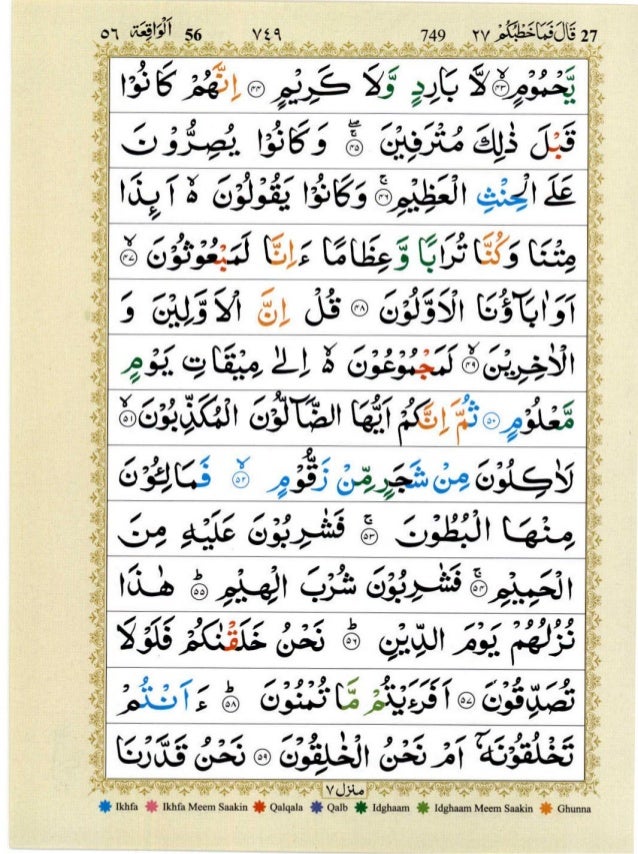 27 قَالَ فَمَا خَطْبُكُمْ ٢٧ 749 ٧٤٩ 56 اَلْوَاقِعَة ٥٦
يَّحْمُوْمٍۙ ﴿۴۳﴾ لَّا بَارِدٍ وَّلَا كَرِيْمٍ ﴿۴۴﴾ اِنَّهُمْ كَانُوْا
قَبْلَ ذٰلِكَ مُتْرَفِيْنَ ۚۖ ﴿۴۵﴾ وَكَانُوْا يُصِرُّوْنَ
عَلَى الْحِنْثِ الْعَظِيْمِۚ ﴿۴۶﴾ وَكَانُوْا يَقُوْلُوْنَ ۙ۬ اَىِٕذَا
مِتْنَا وَكُنَّا تُرَابًا وَّعِظَامًا ءَاِنَّا لَمَبْعُوْثُوْنَ ۙ ﴿۴۷﴾
اَوَاٰبَآؤُنَا الْاَوَّلُوْنَ ﴿۴۸﴾ قُلْ اِنَّ الْاَوَّلِيْنَ وَ
الْاٰخِرِيْنَۙ ﴿۴۹﴾ لَمَجْمُوْعُوْنَ ۙ۬ اِلٰى مِيْقَاتِ يَوْمٍ
مَّعْلُوْمٍ ﴿۵۰﴾ ثُمَّ اِنَّكُمْ اَيُّهَا الضَّآلُّوْنَ الْمُكَذِّبُوْنَۙ ﴿۵۱﴾
لَاٰكِلُوْنَ مِنْ شَجَرٍ مِّنْ زَقُّوْمٍ ۙ ﴿۵۲﴾ فَمَالِـُٔوْنَ
مِنْهَا الْبُطُوْنَ ۚ ﴿۵۳﴾ فَشٰرِبُوْنَ عَلَيْهِ مِنَ
الْحَمِيْمِۚ ﴿۵۴﴾ فَشٰرِبُوْنَ شُرْبَ الْهِيْمِ ؕ ﴿۵۵﴾ هٰذَا
نُزُلُهُمْ يَوْمَ الدِّيْنِ ؕ ﴿۵۶﴾ نَحْنُ خَلَقْنٰكُمْ فَلَوْلَا
تُصَدِّقُوْنَ ﴿۵۷﴾ اَفَرَءَيْتُمْ مَّا تُمْنُوْنَ ؕ ﴿۵۸﴾ ءَاَنْتُمْ
تَخْلُقُوْنَهٗۤ اَمْ نَحْنُ الْخٰلِقُوْنَ ﴿۵۹﴾ نَحْنُ قَدَّرْنَا
منزل ٧
Ikhfa Ikhfa Meem Saakin Qalqala Qalb Idghaam Idghaam Meem Saakin Ghunna